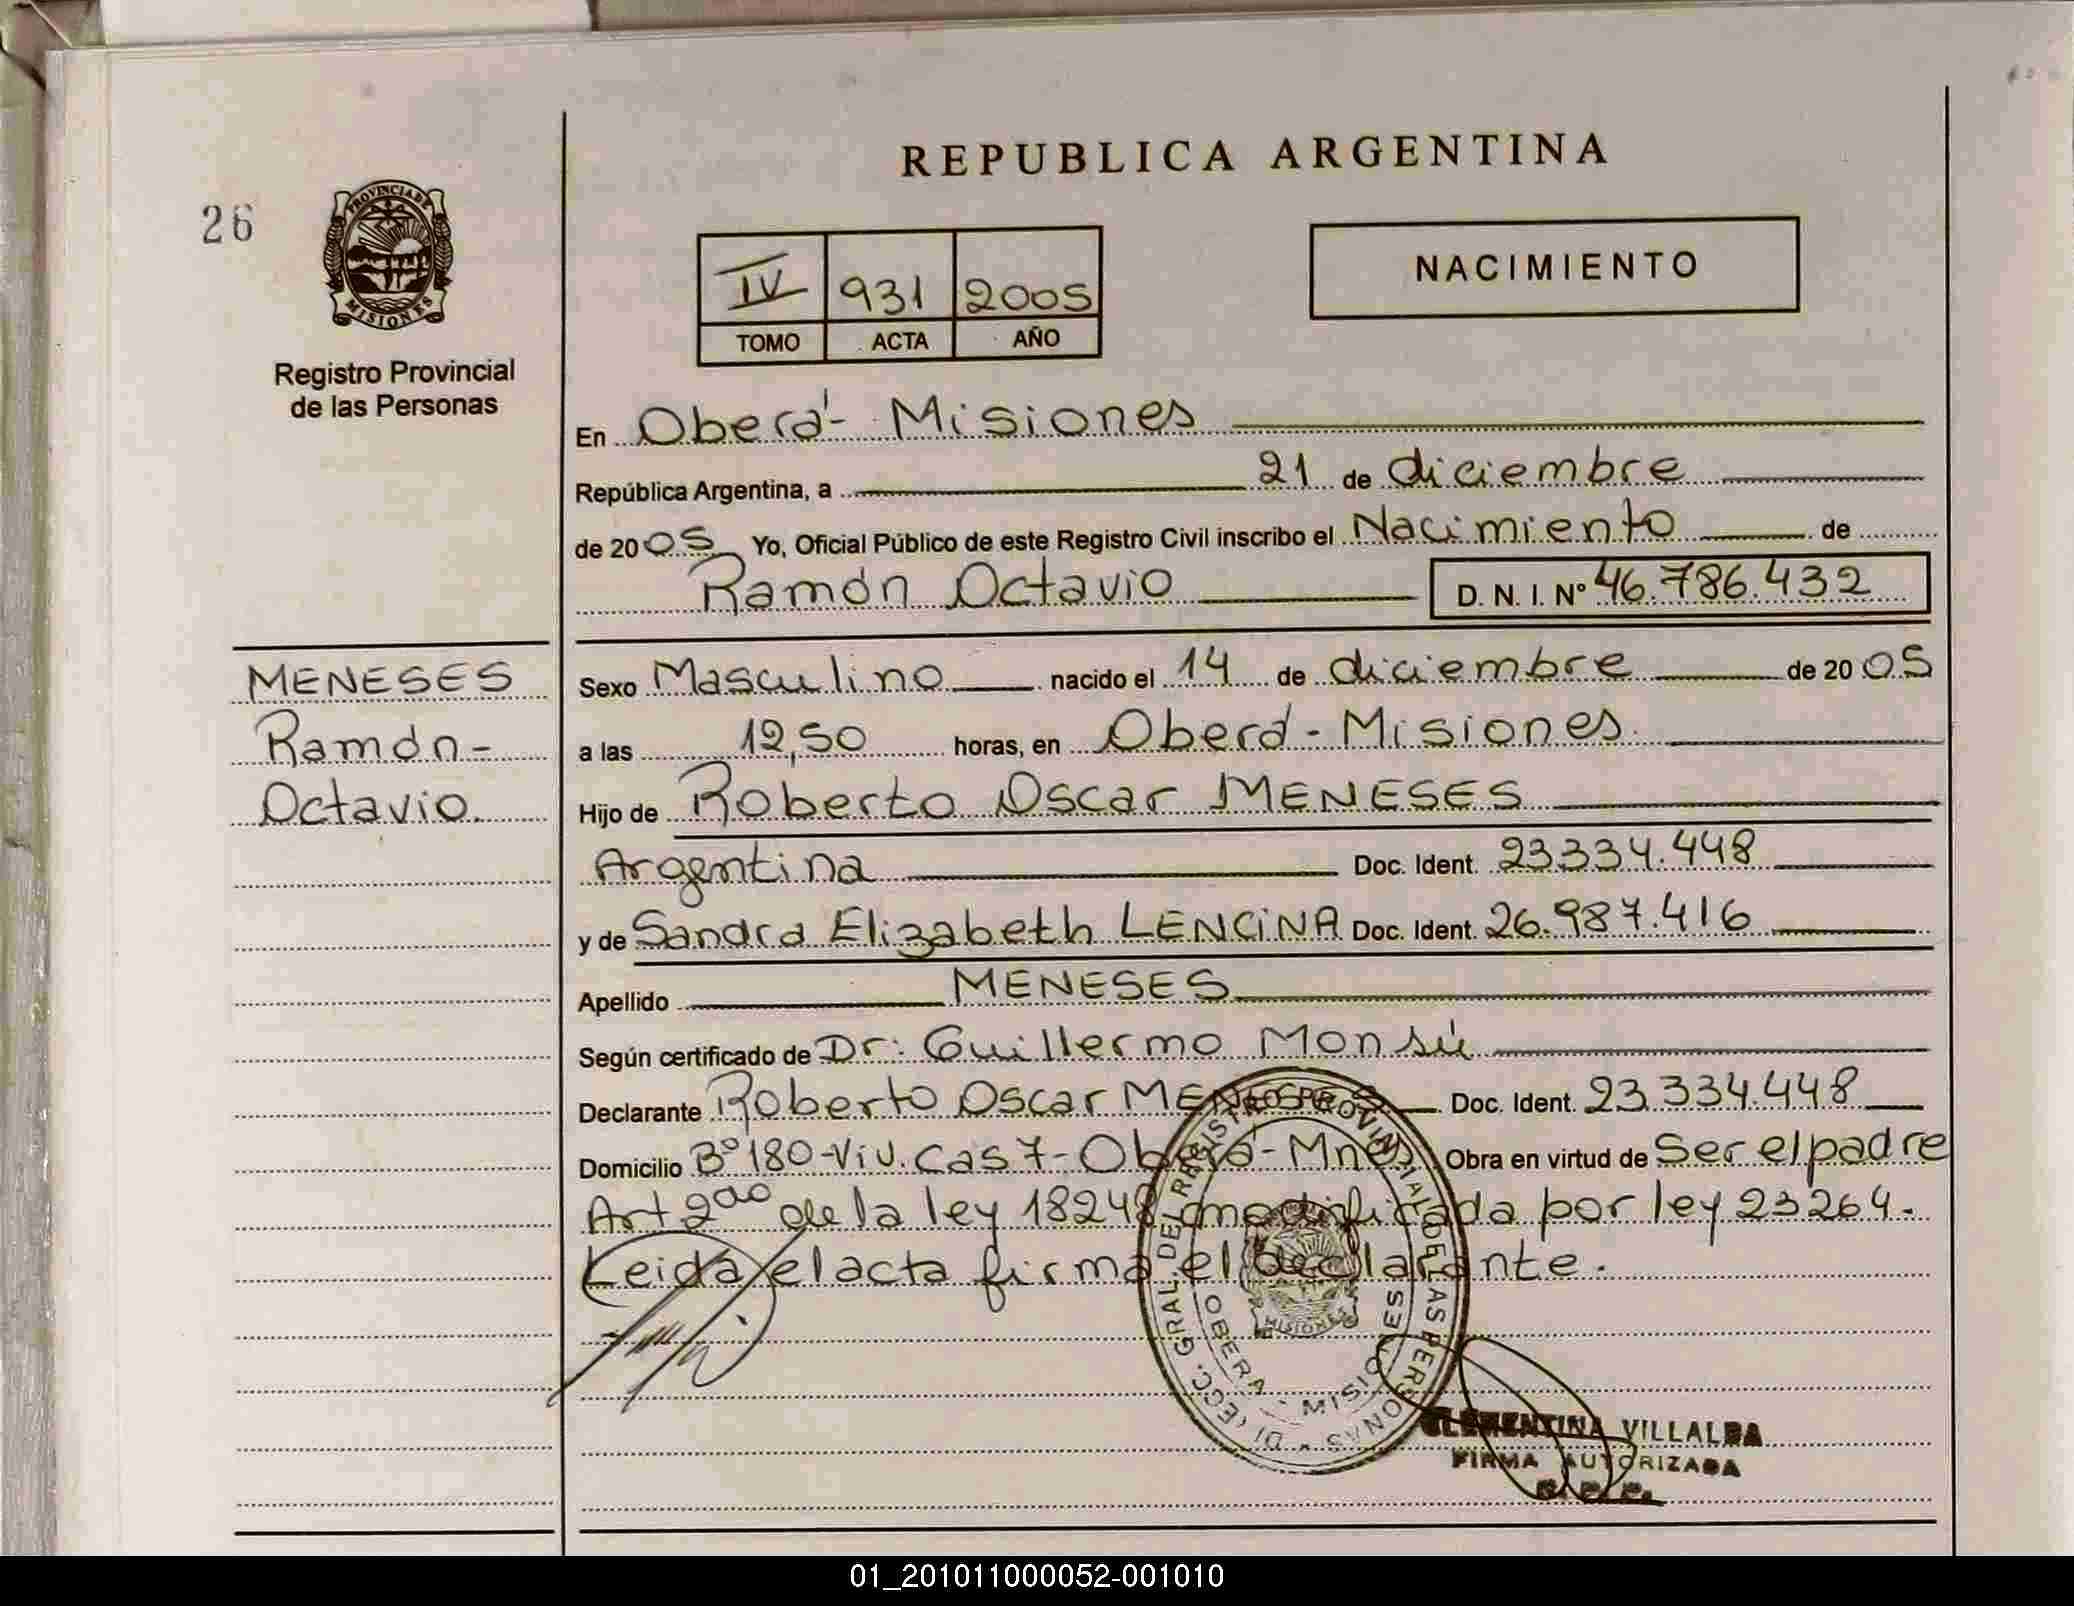 REPUBLICA ARGENTINA
26
PROVINCIA DE
MISIONES
Registro Provincial
de las Personas
IV 931 2005
TOMO ACTA AÑO
NACIMIENTO
En Oberá - Misiones
República Argentina, a 21 de diciembre
de 2005 Yo, Oficial Público de este Registro Civil inscribo el Nacimiento de
Ramón Octavio D. N. I. Nº 46.786.432
MENESES
Ramón-
Octavio.
Sexo Masculino nacido el 14 de diciembre de 2005
a las 12,50 horas, en Oberá - Misiones.
Hijo de Roberto Oscar MENESES
Argentina Doc. Ident. 23.334.448
y de Sandra Elizabeth LENCINA Doc. Ident. 26.987.416
Apellido MENESES
Según certificado de Dr: Guillermo Monsú
Declarante Roberto Oscar MENESES Doc. Ident. 23.334.448
Domicilio Bº 180-Viv. Cas 7-Oberá-Mnes. Obra en virtud de Ser el padre
Art 2do de la ley 18248 modificada por ley 23264.
Leida el acta firma el declarante.
REGISTRO PROVINCIAL DE LAS PERSONAS
OBERA - MISIONES
MISIONES
CLEMENTINA VILLALBA
FIRMA AUTORIZADA
R. P. P.
01_201011000052-001010